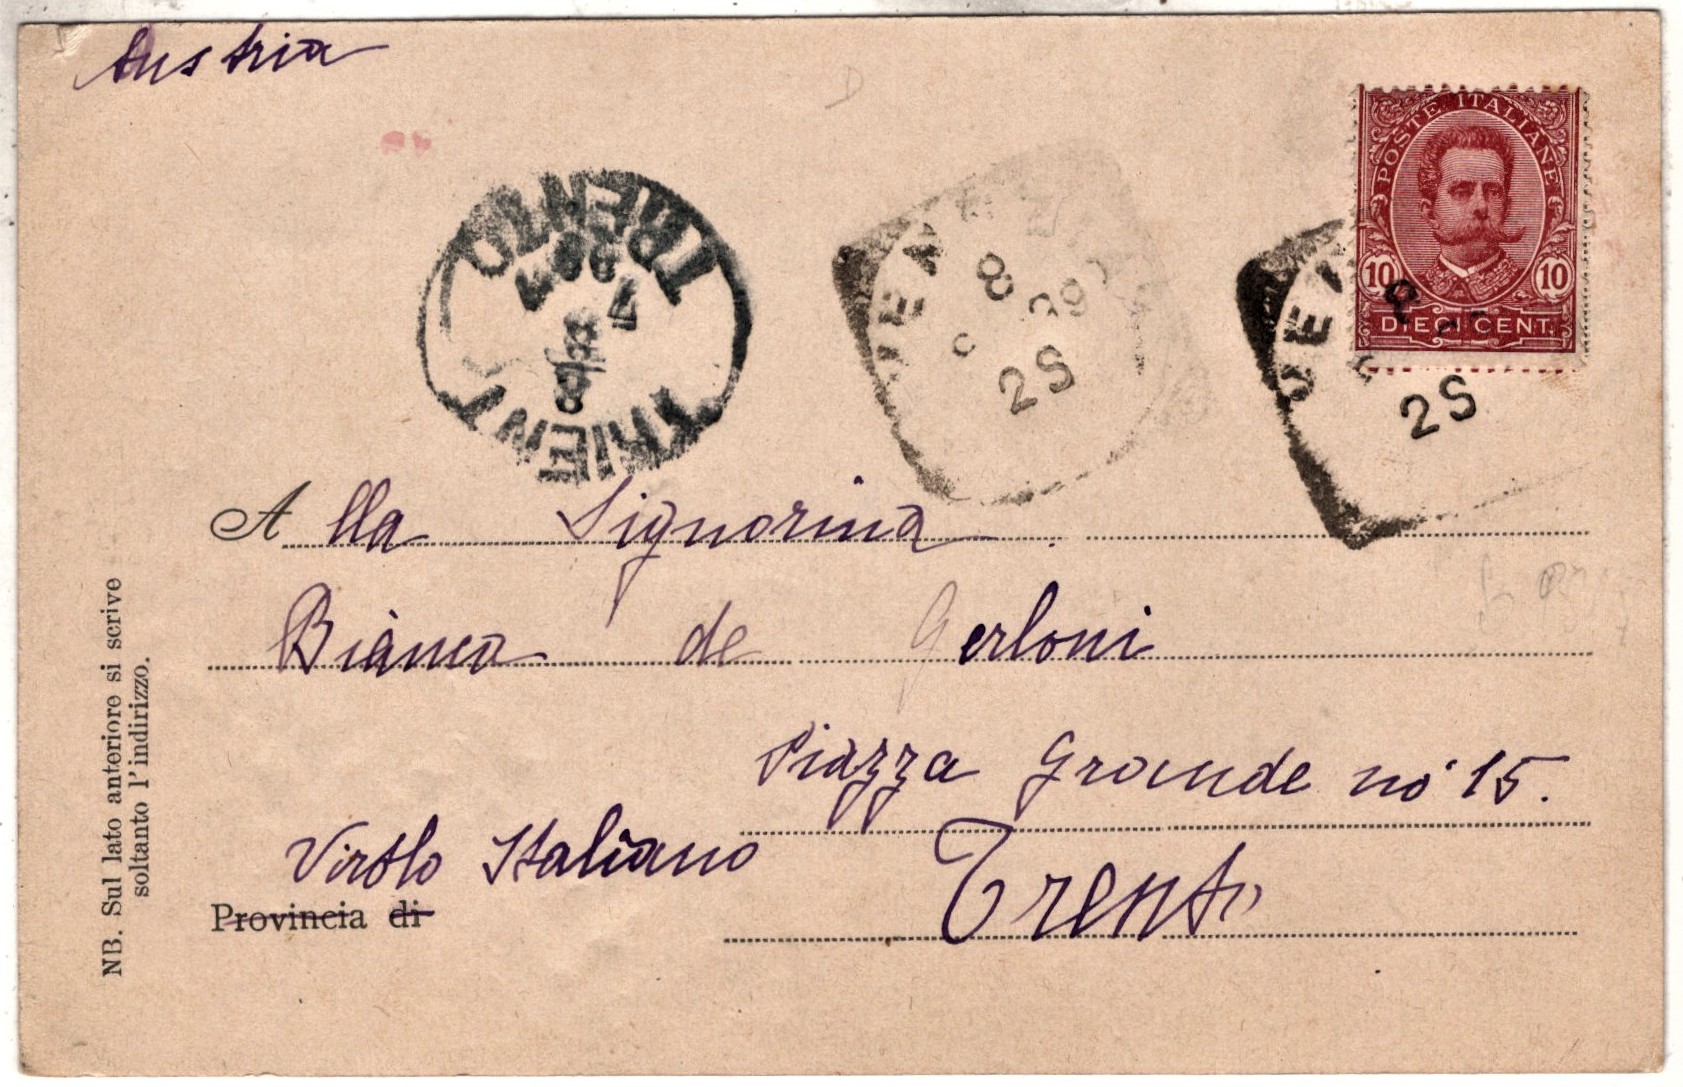 Austria
POSTE ITALIANE
10 10
DIECI CENT.
TRENTO
TRIENT
8
25
8
25
Alla Signorina
Bianca de Gerloni
Piazza Grande no 15.
Virolo Italiano
Trento
Provincia di
NB. Sul lato anteriore si scrive
soltanto l'indirizzo.